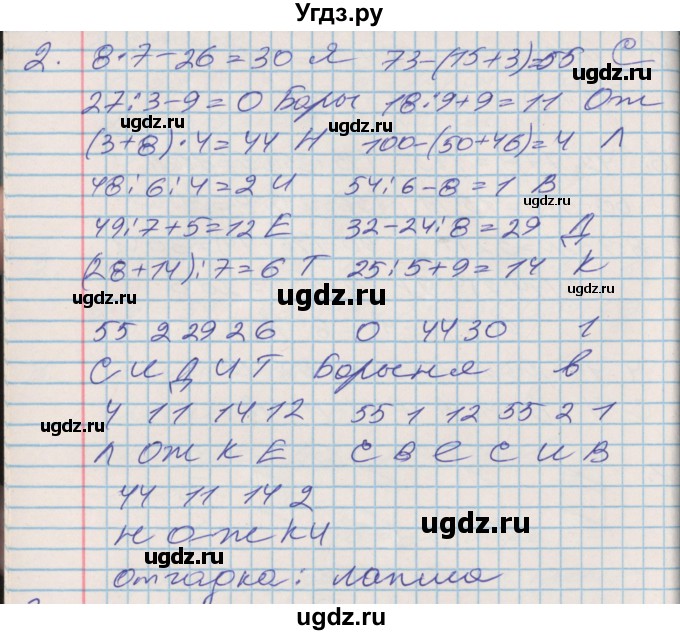 Угдз.ру
2. 8·7-26=30 Я 73-(15+3)=55 С
ugdz.ru
27:3-9=0 Боры 18:9+9=11 Ож
ugdz.ru ugdz.ru
(3+8)·4=44 Н 100-(50+46)=4 Л
48:6:4=2 И 54:6-8=1 В
ugdz.ru
49:7+5=12 Е 32-24:8=29 Д
(28+14):7=6 Т 25:5+9=14 К
ugdz.ru ugdz.ru ugdz.ru
55 2 29 2 6 0 44 30 1
СИДИТ Борыня в
ugdz.ru
4 11 14 12 55 1 12 55 2 1
ugdz.ru
Л ОЖ К Е С В Е С И В
44 11 14 2
ugdz.ru
н о-ж к и
ugdz.ru
отгадка: лапша
ugdz.ru ugdz.ru